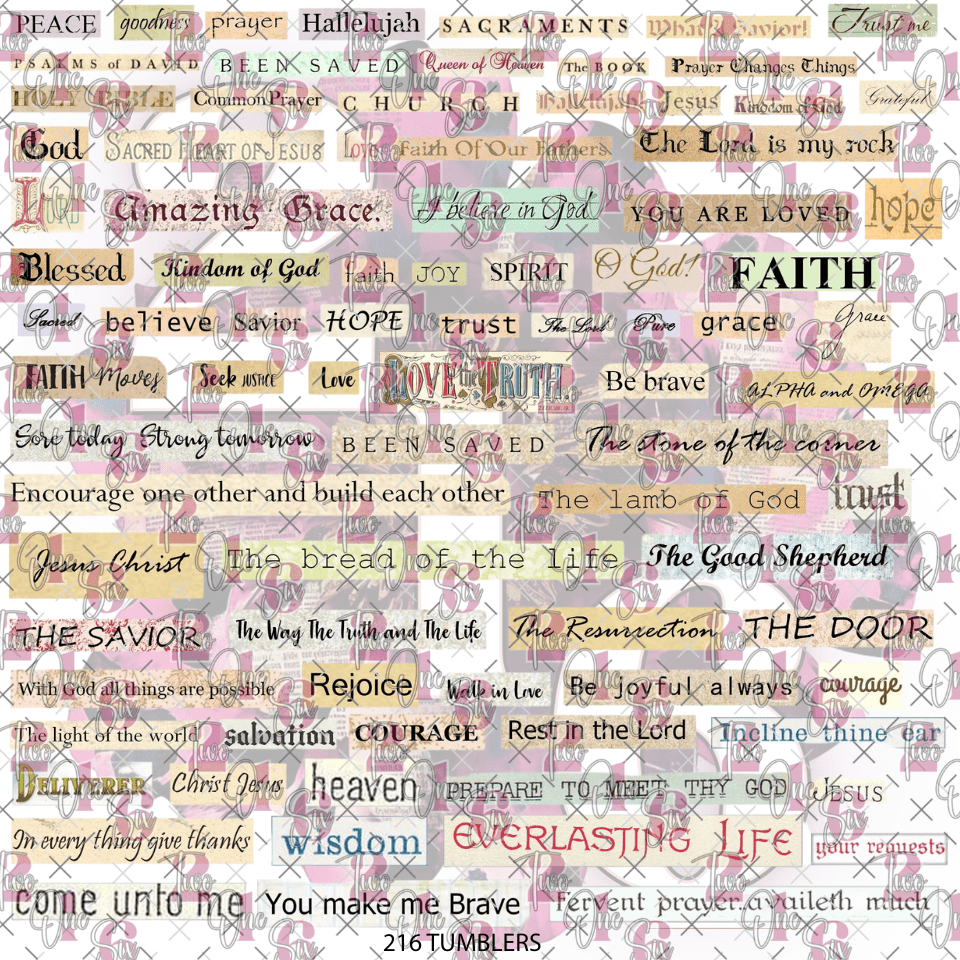 PEACE goodness prayer Hallelujah SACRAMENTS What A Savior! Trust me
PSALMS of DAVID BEEN SAVED Queen of Heaven The BOOK Prayer Changes Things
HOLY BIBLE Common Prayer CHURCH Hallelujah Jesus Kingdom of God Grateful
God SACRED HEART OF JESUS Love Faith Of Our Fathers The Lord is my rock
LORD Amazing Grace. I believe in God YOU ARE LOVED hope
Blessed Kindom of God faith JOY SPIRIT O God! FAITH
Sacred believe Savior HOPE trust The Lord Pure grace Grace
FAITH Moves Seek JUSTICE Love LOVE the TRUTH. Be brave ALPHA and OMEGA
Sore today Strong tomorrow BEEN SAVED The stone of the corner
Encourage one other and build each other The lamb of God trust
Jesus Christ The bread of the life The Good Shepherd
THE SAVIOR The Way The Truth and The Life The Resurrection THE DOOR
With God all things are possible Rejoice Walk in Love Be joyful always courage
The light of the world salvation COURAGE Rest in the Lord Incline thine ear
DELIVERER Christ Jesus heaven PREPARE TO MEET THY GOD JESUS
In every thing give thanks wisdom EVERLASTING LIFE your requests
come unto me You make me Brave fervent prayer availeth much
216 TUMBLERS